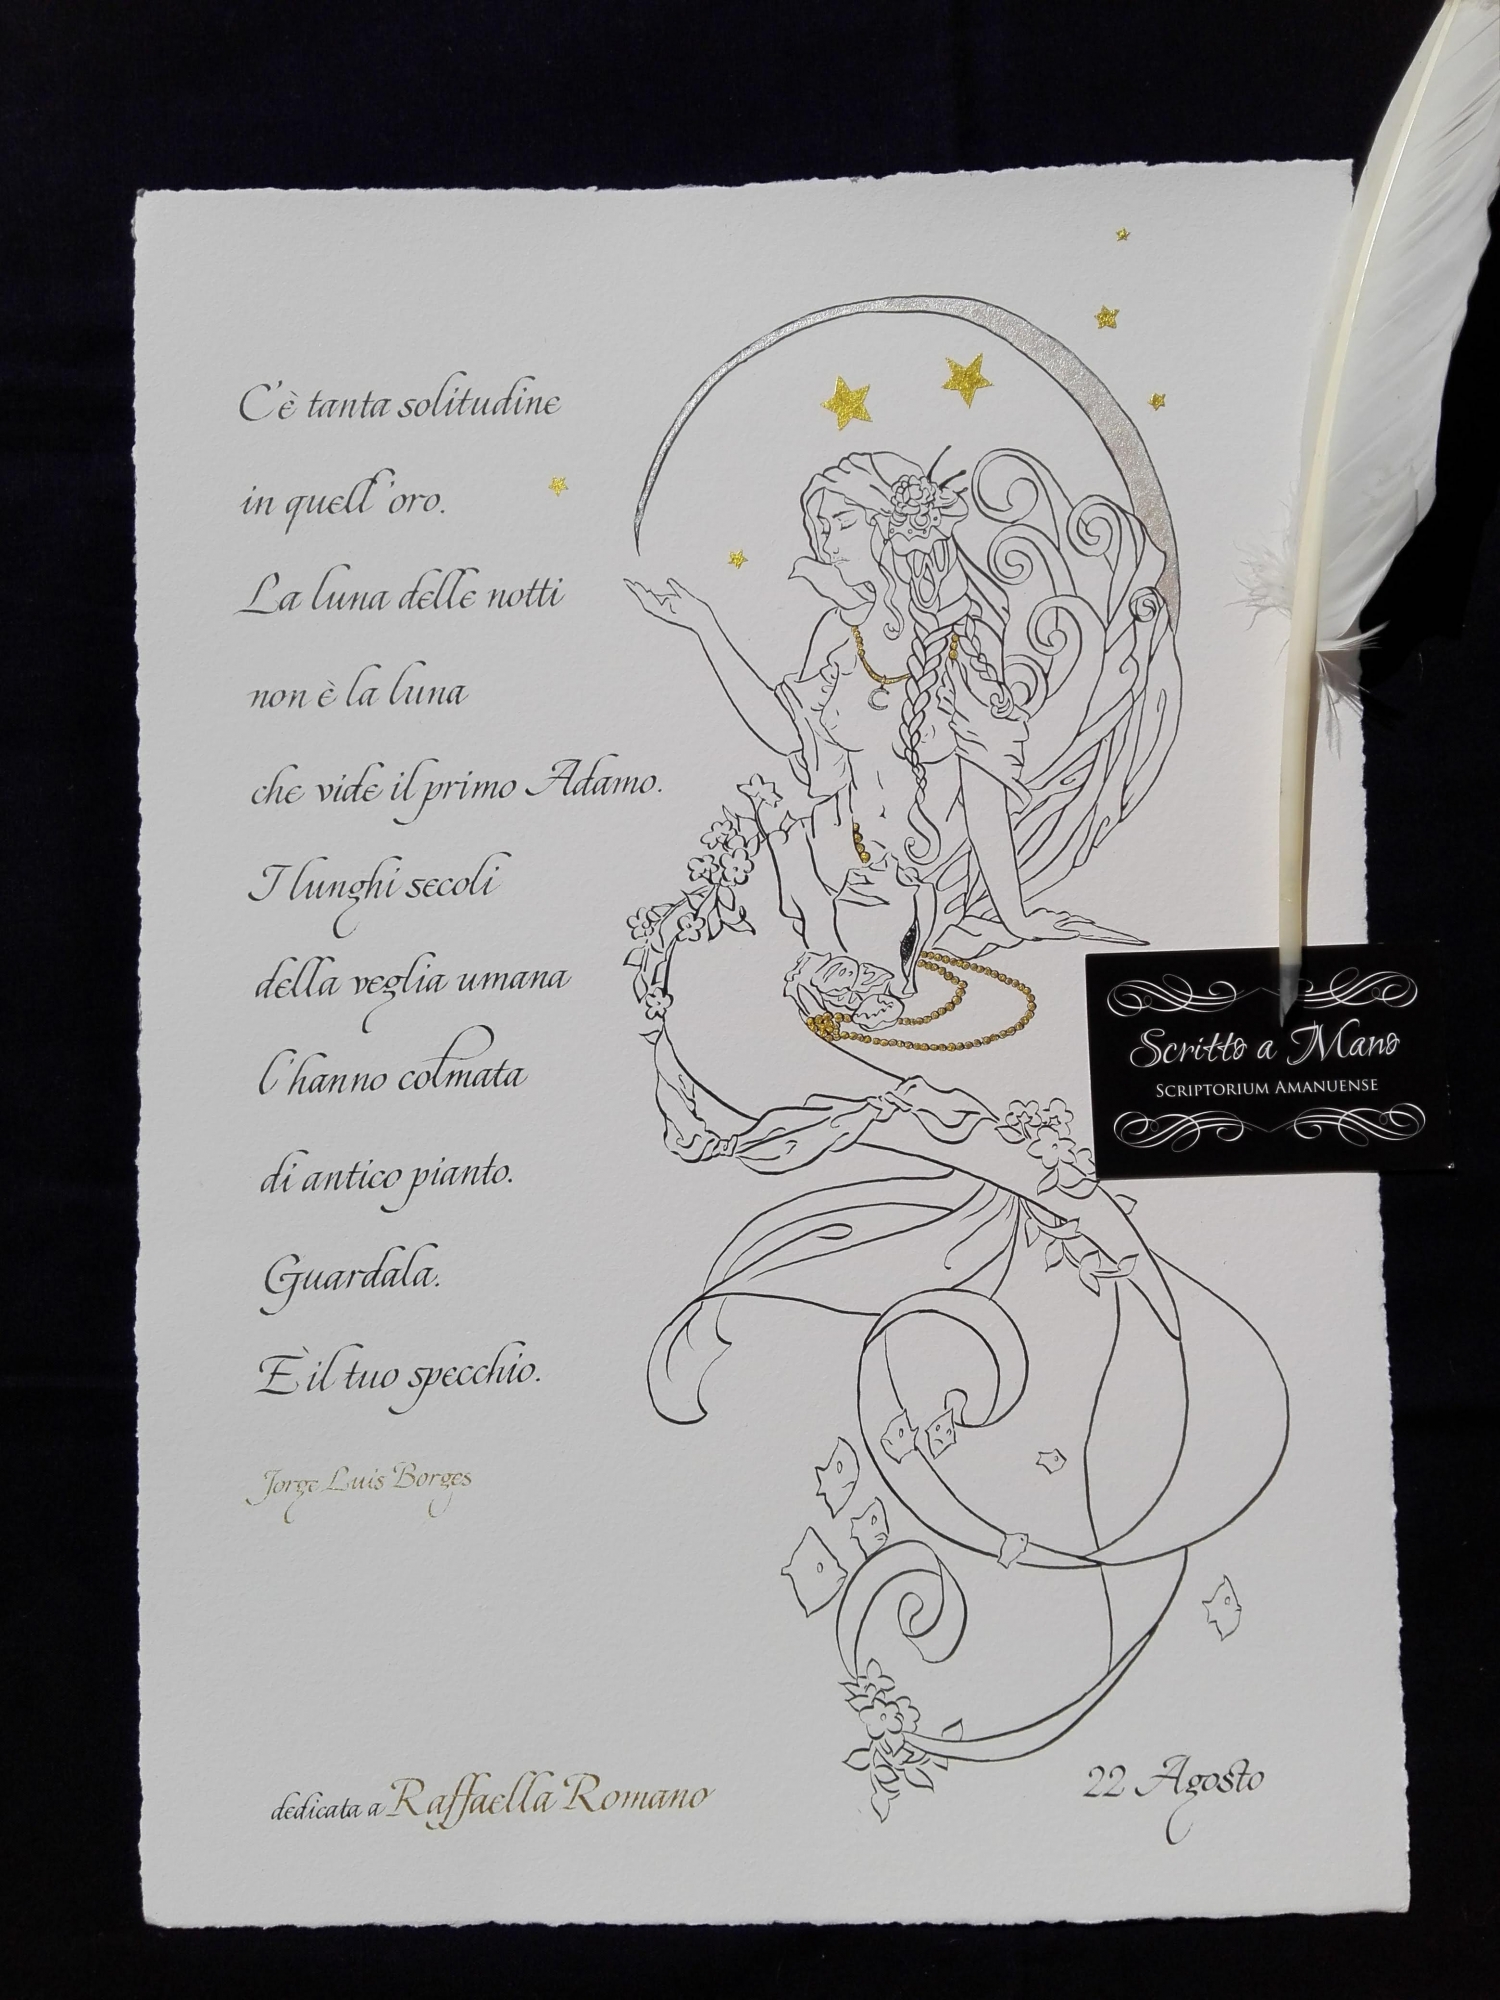 C'è tanta solitudine
in quell'oro.
La luna delle notti
non è la luna
che vide il primo Adamo.
I lunghi secoli
della veglia umana
l'hanno colmata
di antico pianto.
Guardala.
È il tuo specchio.
Jorge Luis Borges
Scritto a Mano
SCRIPTORIUM AMANUENSE
dedicata a Raffaella Romano
22 Agosto